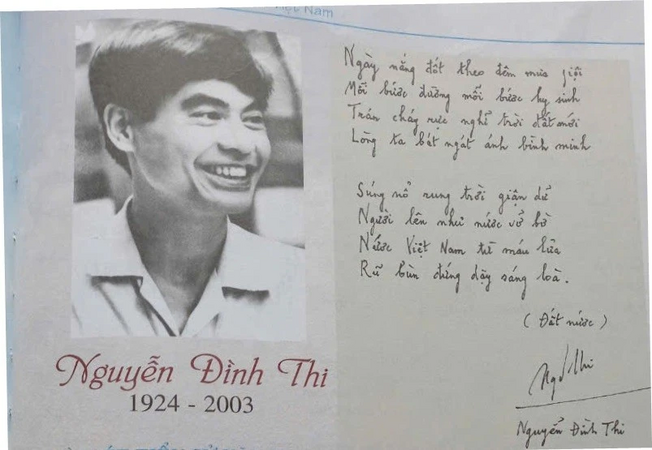 Việt Nam
Ngày nắng đốt theo đêm mưa giội
Mỗi bước đường mỗi bước hy sinh
Trán cháy rực nghĩ trời đất mới
Lòng ta bát ngát ánh bình minh
Súng nổ rung trời giận dữ
Người lên như nước vỡ bờ
Nước Việt Nam từ máu lửa
Rũ bùn đứng dậy sáng loà.
(Đất nước)
Nguyễn Đình Thi
1924 - 2003
Nguyễn Đình Thi